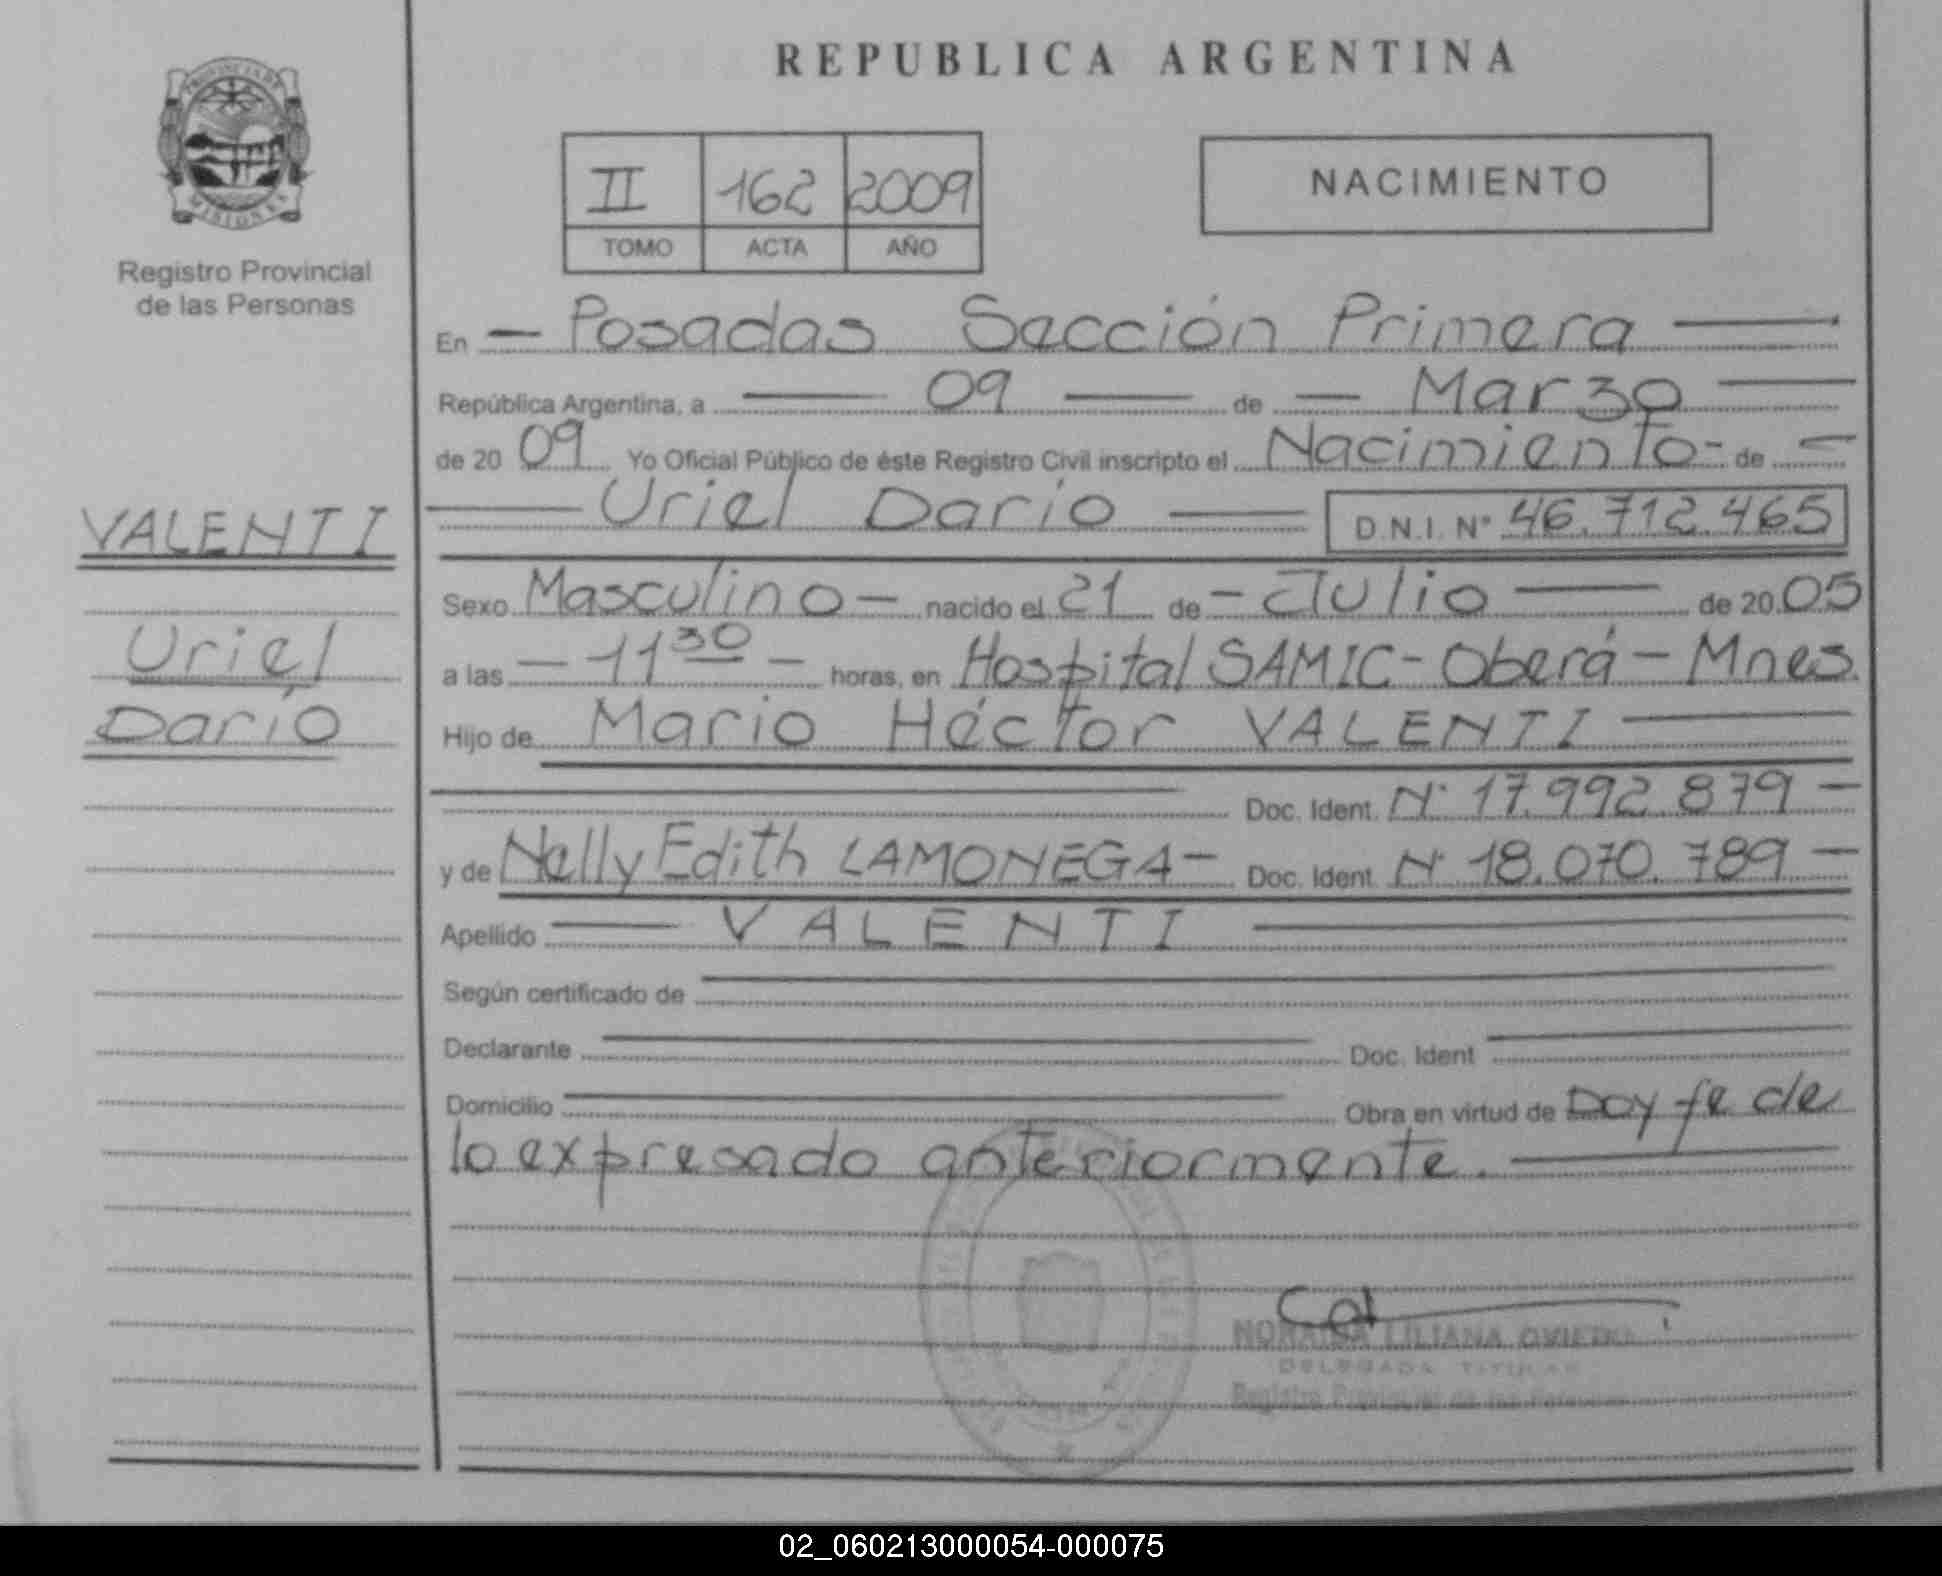 REPUBLICA ARGENTINA
PROVINCIA DE
MISIONES
Registro Provincial
de las Personas
II 162 2009
TOMO ACTA AÑO
NACIMIENTO
En Posadas Sección Primera
República Argentina, a 09 de Marzo
de 20 09 Yo Oficial Público de éste Registro Civil inscripto el Nacimiento de
Uriel Darío D.N.I. Nº 46.712.465
VALENTI
Uriel
Darío
Sexo Masculino nacido el 21 de Julio de 20 05
a las 11 30 horas, en Hospital SAMIC - Oberá - Mnes.
Hijo de Mario Héctor VALENTI
Doc. Ident. Nº 17.992.879
y de Nelly Edith LAMONEGA Doc. Ident. Nº 18.070.789
Apellido VALENTI
Según certificado de
Declarante Doc. Ident
Domicilio Obra en virtud de Doy fe de
lo expresado anteriormente.
LILIANA OVIEDO
DELEGADA TITULAR
Registro Provincial de las Personas
02_060213000054-000075